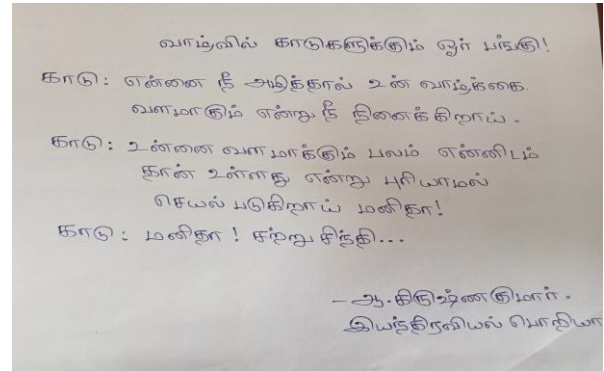 வாழ்வில் காடுகளுக்கும் ஓர் பங்கு!
காடு: என்னை நீ அழித்தால் உன் வாழ்க்கை
வளமாகும் என்று நீ நினைக்கிறாய்.
காடு: உன்னை வளமாக்கும் பலம் என்னிடம்
தான் உள்ளது என்று புரியாமல்
செயல் படுகிறாய் மனிதா!
காடு: மனிதா! சற்று சிந்தி...
- ஆ.கிருஷ்ணகுமார்.
இயந்திரவியல் பொறியா